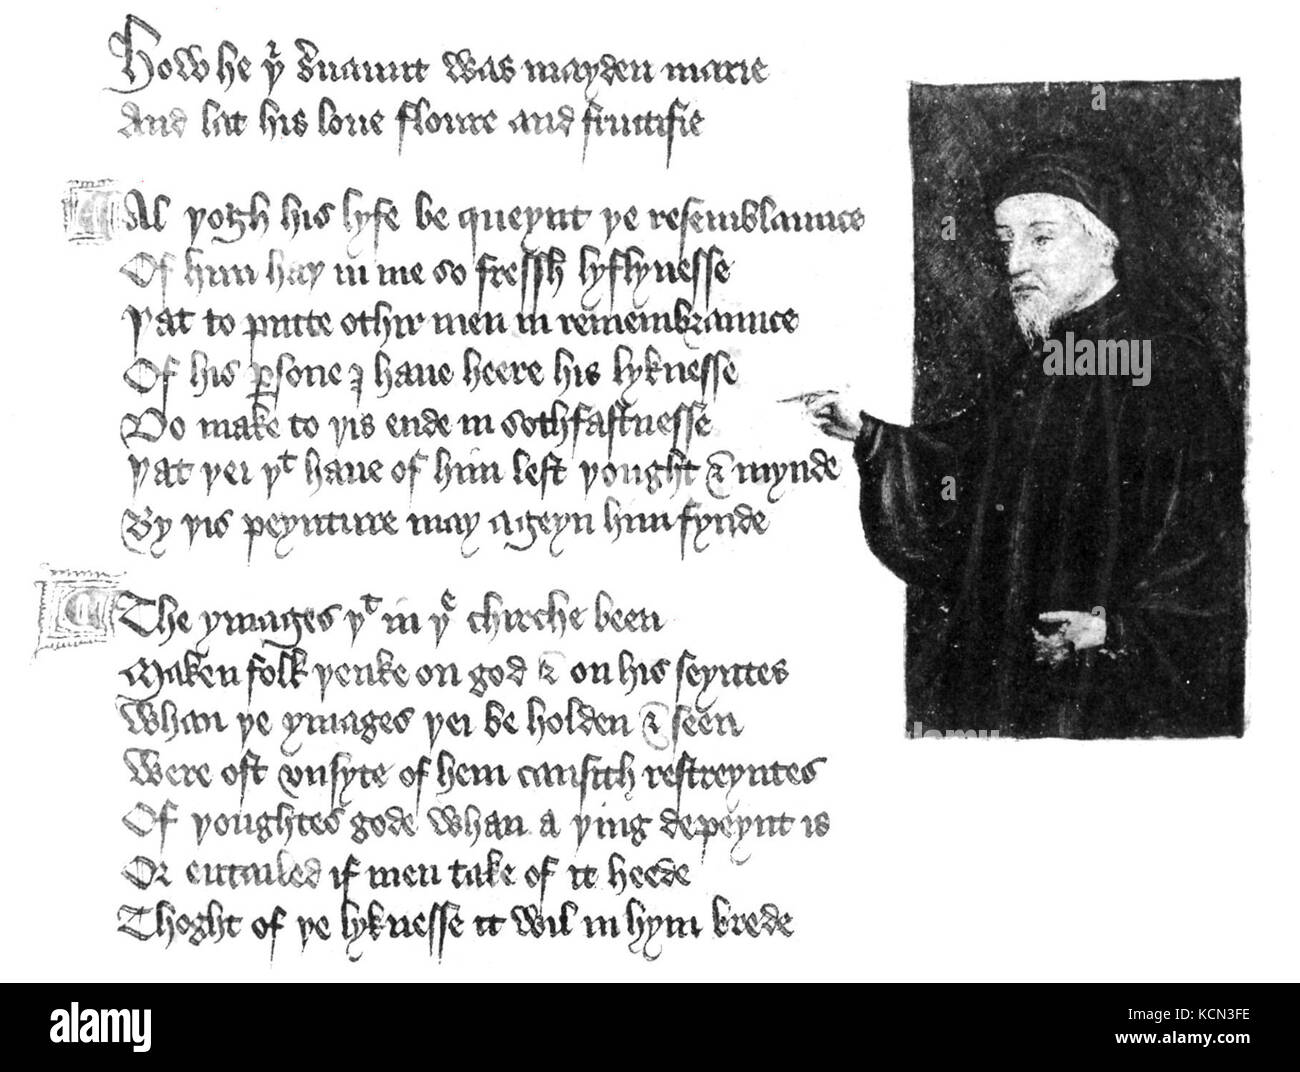 How he yͬ ẜuaunt was mayden marie
And lat his loue floure and fructifie
Al yogh his lyfe be queynt ye resemblaunce
Of him hay in me so fressh lyflynesse
Yat to putte othir men in remembraunce
Of his ꝑsone I haue heere his lyknesse
Do make to yis ende in sothfastnesse
Yat yei yͭ haue of him left yought & mynde
By yis peynture may ageyn him fynde
The ymages yͭ in yͤ chirche been
Maken folk yenke on god & on his seyntes
Whan ye ymages yei be holden & seen
Were oft vnsyte of hem causith restreyntes
Of youghtes gode whan a ying depeynt is
Or entailed if men take of it heede
Thoght of ye lyknesse it wil in hym brede
a
alamy
a
alamy
a
a
a
alamy
Image ID: KCN3FE
www.alamy.com